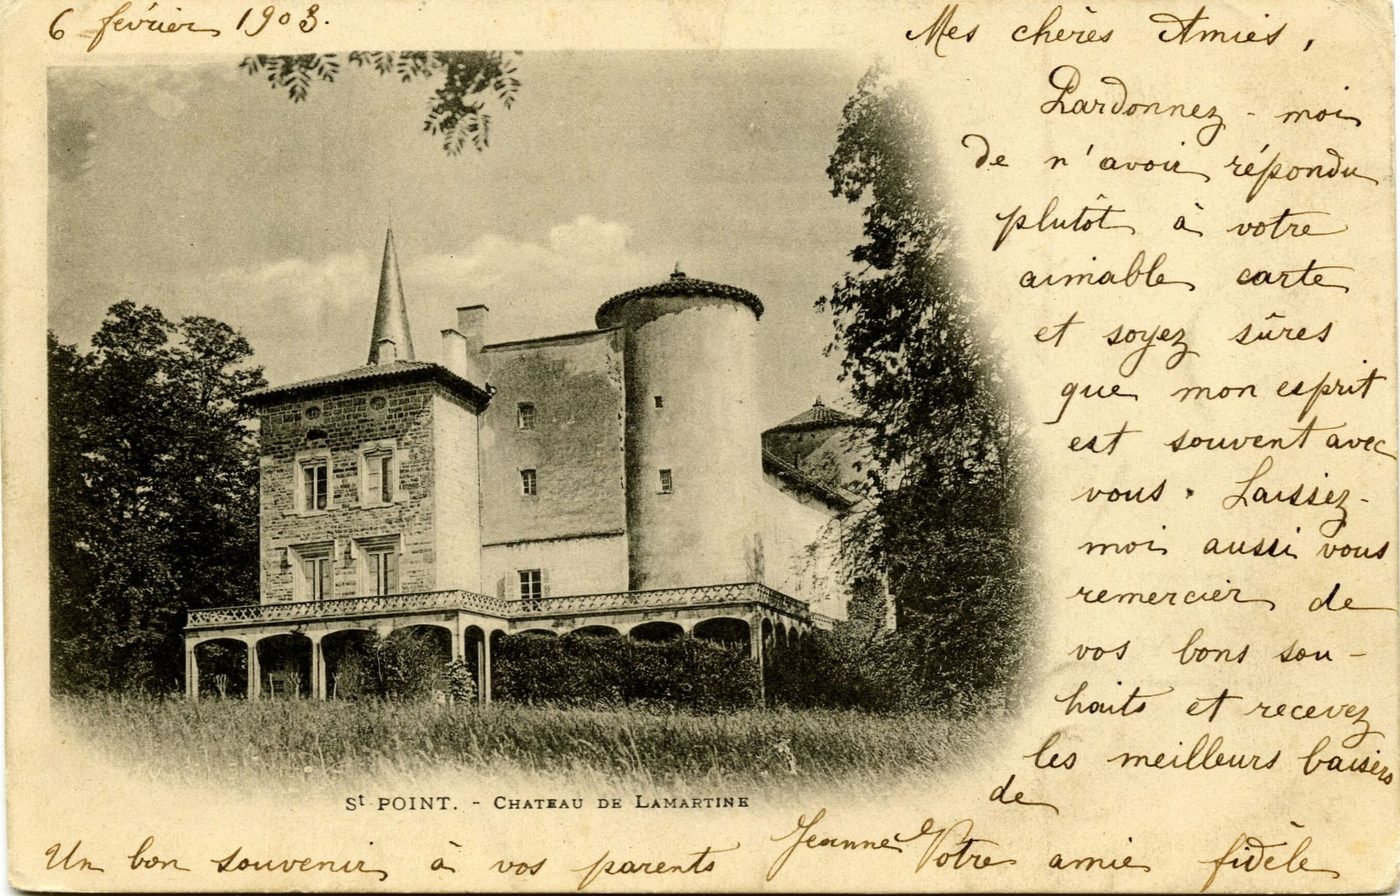 6 février 1903.
Mes chères Amies,
Pardonnez-moi
de n'avoir répondu
plutôt à votre
aimable carte
et soyez sûres
que mon esprit
est souvent avec
vous. Laissez-
moi aussi vous
remercier de
vos bons sou-
haits et recevez
les meilleurs baisers
de
Jeanne Votre amie fidèle
Un bon souvenir à vos parents
St POINT. - CHATEAU DE LAMARTINE